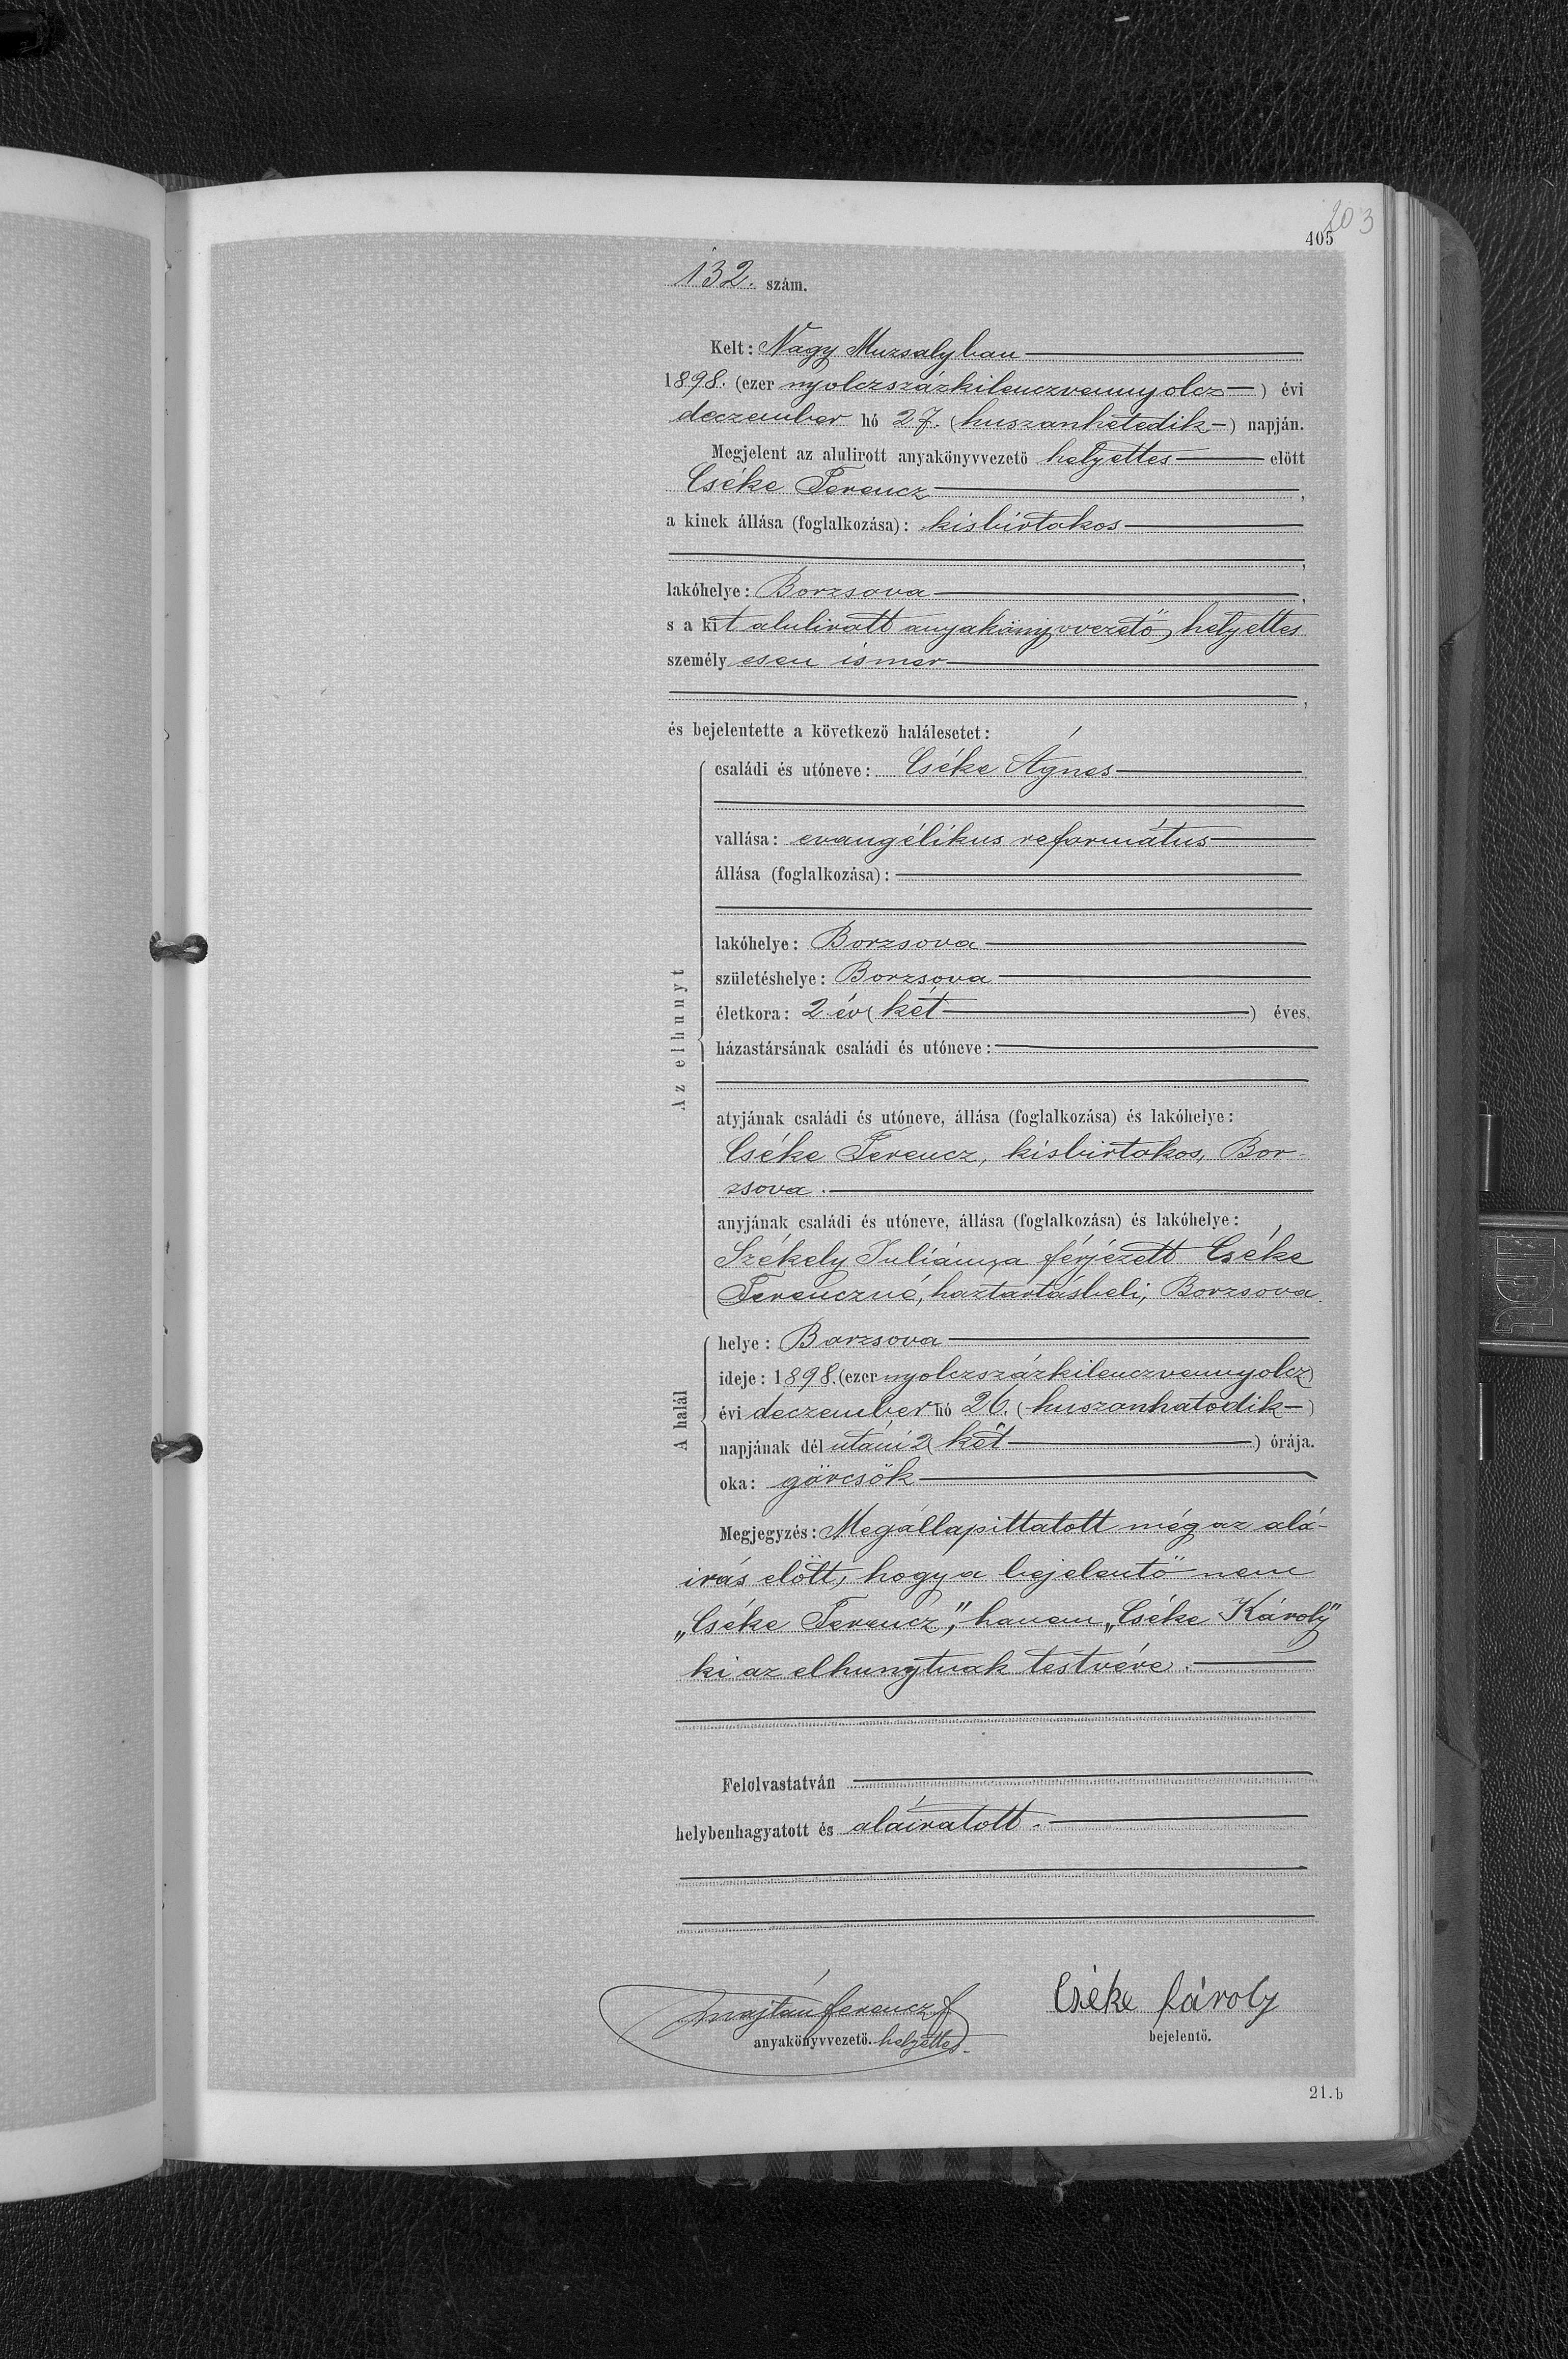 203
405
132. szám.
Kelt: Nagy Muzsalyban
1898. (ezer nyolczszázkilenczvennyolcz) évi
deczember hó 27. (huszonhetedik) napján.
Megjelent az alulirott anyakönyvvezető helyettes előtt
Cséke Ferencz,
a kinek állása (foglalkozása): kisbirtokos
,
lakóhelye: Borzsova,
s a kit alulirott anyakönyvvezető helyettes
személyesen ismer
,
és bejelentette a következő halálesetet:
Az elhunyt
családi és utóneve: Cséke Ágnes
vallása: evangélikus református
állása (foglalkozása):
lakóhelye: Borzsova
születéshelye: Borzsova
életkora: 2 év (két) éves,
házastársának családi és utóneve:
atyjának családi és utóneve, állása (foglalkozása) és lakóhelye:
Cséke Ferencz, kisbirtokos, Bor-
zsova.
anyjának családi és utóneve, állása (foglalkozása) és lakóhelye:
Székely Juliánna férjezett Cséke
Ferenczné, háztartásbeli, Borzsova.
A halál
helye: Borzsova
ideje: 1898. (ezer nyolczszázkilenczvennyolcz)
évi deczember hó 26. (huszonhatodik)
napjának dél utáni 2 (két) órája.
oka: görcsök
Megjegyzés: Megállapittatott még az alá-
irás előtt, hogy a bejelentő nem
„Cséke Ferencz", hanem „Cséke Károly"
ki az elhunytnak testvére.
Felolvastatván
helybenhagyatott és aláiratott.
Majtán Ferencz Cséke Károly
anyakönyvvezető. helyettes. bejelentő.
21.b